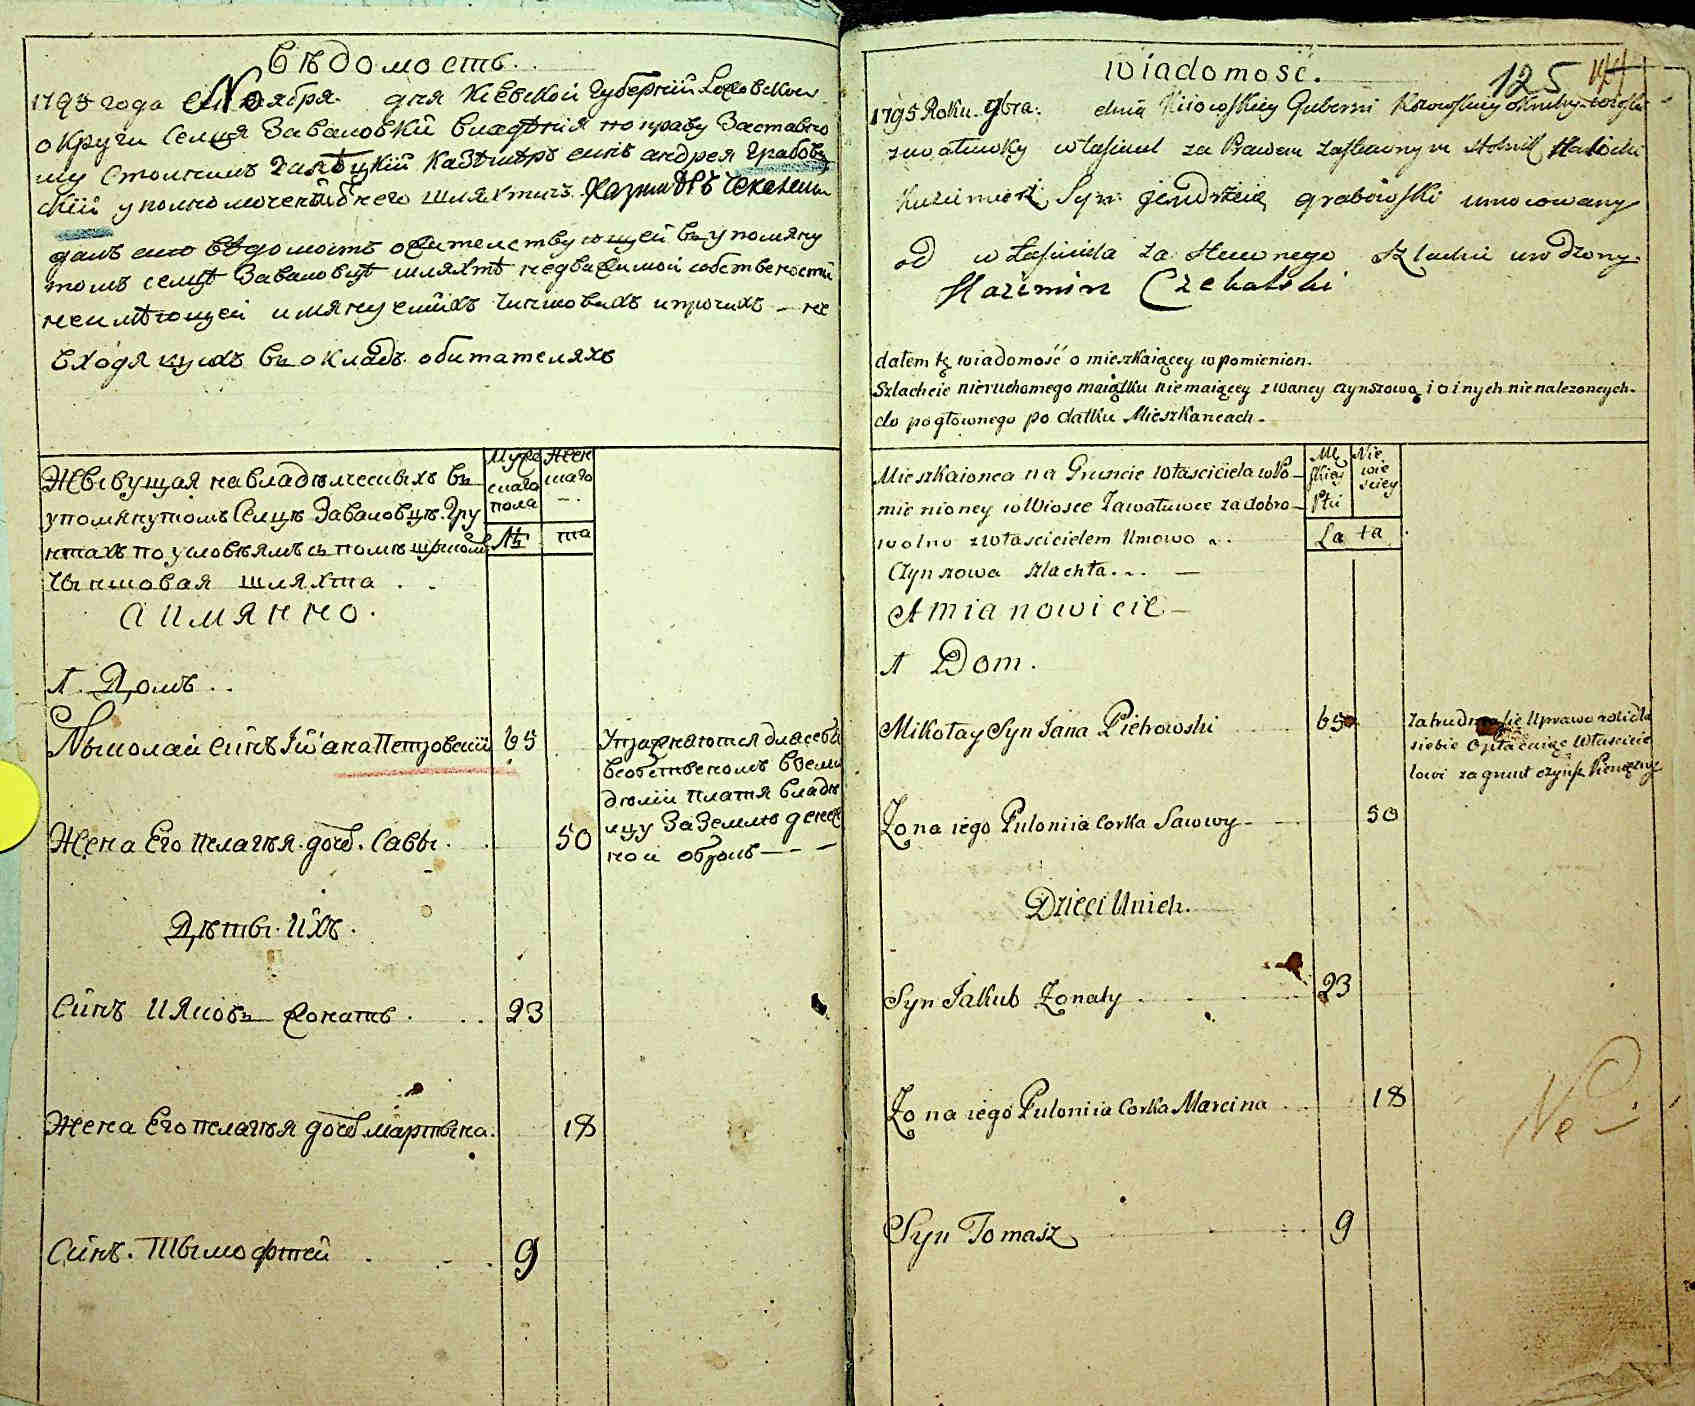 Вѣдомость.
1795 года Ноября дня Кіевской Губерній
округи Селця Заваловки владѣнія по праву Заставно
му Галѣцкій Казѣмѣръ синъ андрея Грабовъ
скій уполномоченій отнего шляхтичъ Казимѣръ Чекалскій
далъ сию вѣдомость обителствующей въ упомяну
томъ селцѣ Заваловцѣ шляхтѣ недвижимой собствености
неимѣющей имянуемихъ чиншовихъ ипрочихъ не
входящихъ въ окладъ обитателяхъ
Жывущая навладѣлческихъ въ
упомянутомъ Селцѣ Заваловцѣ Гру
нтахъ по условѣямъ съ помѣщикомъ
Чыншовая шляхта
Аимянно.
А. Домъ..
Муже
скаго
пола
Женс
каго
Лѣ та
Ныколай синъ Іѡана Петровскій 65
Упражняются длясебя
всобственомъ вземле
дѣлии платя владѣ
лцу Заземлю денеж
ной оброкъ
Жена Его пелагѣя доч. Савы. 50
Дѣты. Ихъ.
Синъ Ияковъ жонатъ 23
Жена Его пелагѣя доч. мартына. 18
Синъ. Тымофтей 9
Wiadomość.
125
1795 Roku. 9bra: dnia Kiiowskiey Gubernii
Zawałuwky własciciel za Prawem Zastawnym Halicki
Kazimierz Syn Jendrzeia Grabowski umocowany
od własciciela Zastawnego Szlachcic urodzony
Kazimirz Czekalski
dałem tę wiadomość o mieszkaiącey wpomienion.
Szlachcie nieruchomego maiątku niemaiącey zwaney czynszową i oinych nienalezoncych.
do pogłownego podatku Mieszkancach.
Mieszkaionca na Gruncie Własciciela wPo
mienioney wWiosce Zawałuwce zadobro
wolno zwłascicielem Umowo
Czynszowa szlachta...
Amianowicie
A Dom.
Mę
skiey
Płci
Nie
wie
sciey
La ta
Mikołay Syn Iana Piehowski 65
Zatrudnia się Uprawo roli dla
siebie Opłacaiąc Własicie
lowi zagrunt czynsz Pieniężny
Zona iego Puloniia Corka Sawwy 50
Dzieci Unich.
Syn Iakub Zonaty 23
Zona iego Puloniia Corka Marcina 18
Syn Tomasz 9